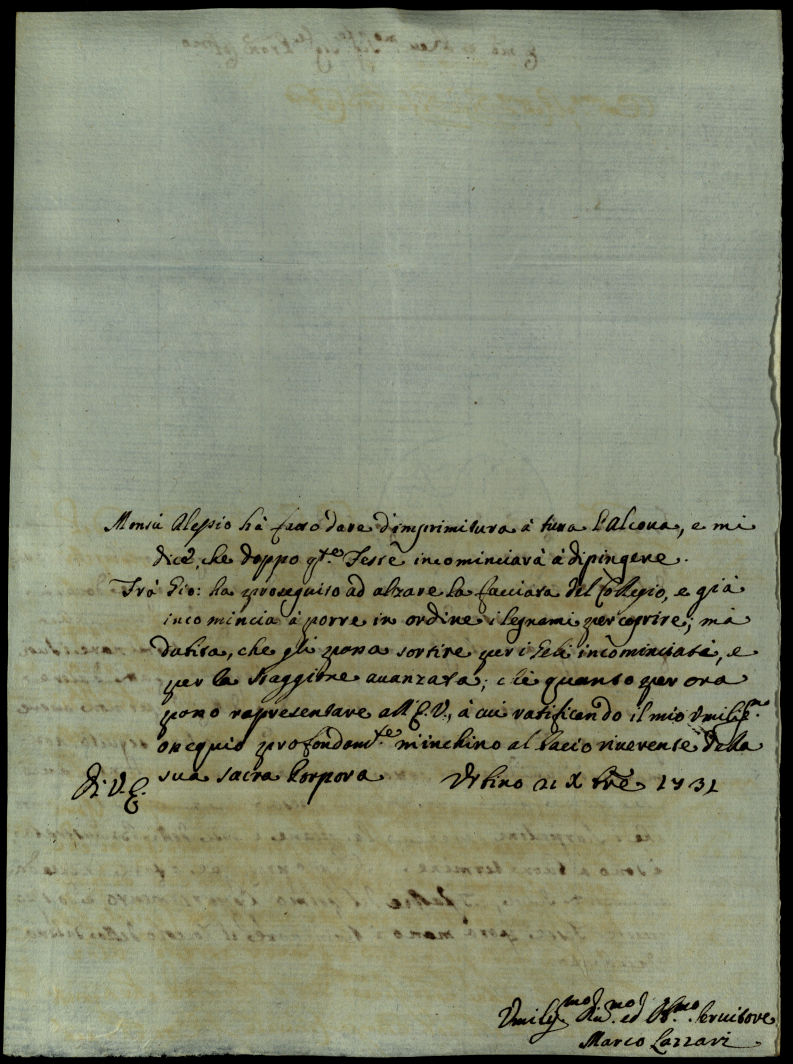 Monsù Alessio hà fatto dare d'imprimitura à tutta l'Alcova, e mi
dice, che doppo q.te Feste incominciarà à dipingere.
Frà Gio: ha proseguito ad alzare la facciata del Collegio, e già
incomincia à porre in ordine i legnami per coprire; mà
dubita, che gli possa sortire per i Geli incominciati, e
per la Staggione avanzata; ch'è quanto per ora
posso rapresentare all'E.V., à cui ratificando il mio Umiliss.mo
ossequio profondam.te m'inchino al bacio riverente della
sua sacra Porpora
Di V. E.
Urbino 21 Xbre 1731
Umiliss.mo Div.mo ed Obb.mo Servitore
Marco Lazzari